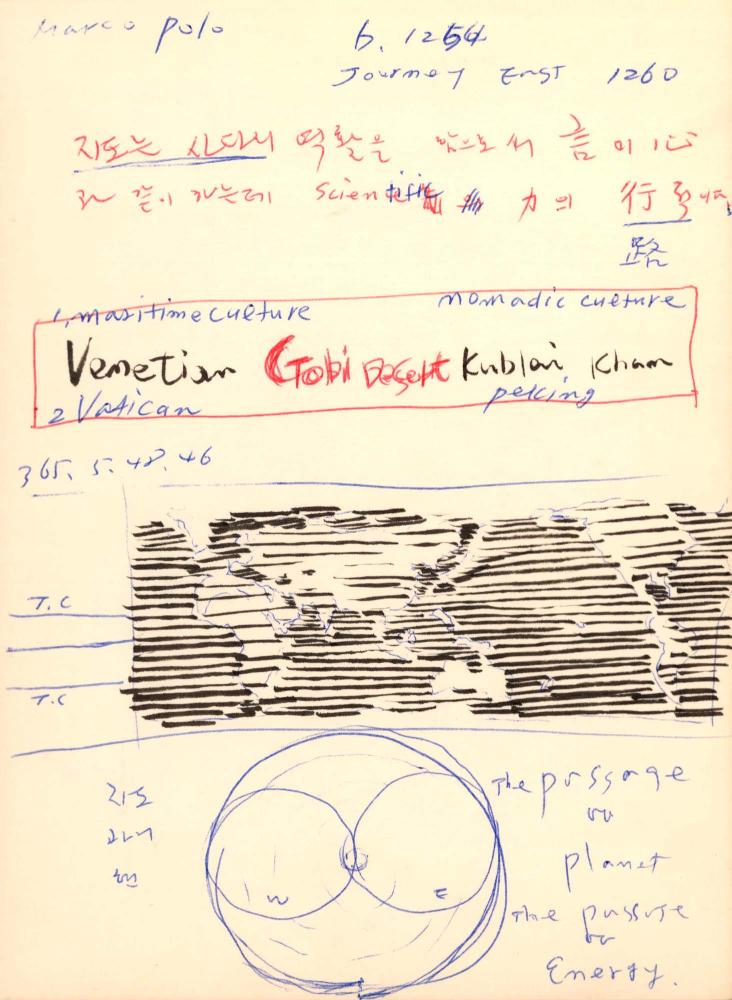 Marco polo
b. 1254
Journey East 1260
지도는 시다시 역활을 앞으로 써
과 같이 가는데 scientific 力의 行
路
1, maritime culture
nomadic culture
Venetian Gobi Desert Kublai Kham
2 Vatican
peking
365. 5. 48. 46
T. C
T. C
지도
The passage
planet
W
E
The passage
Energy.